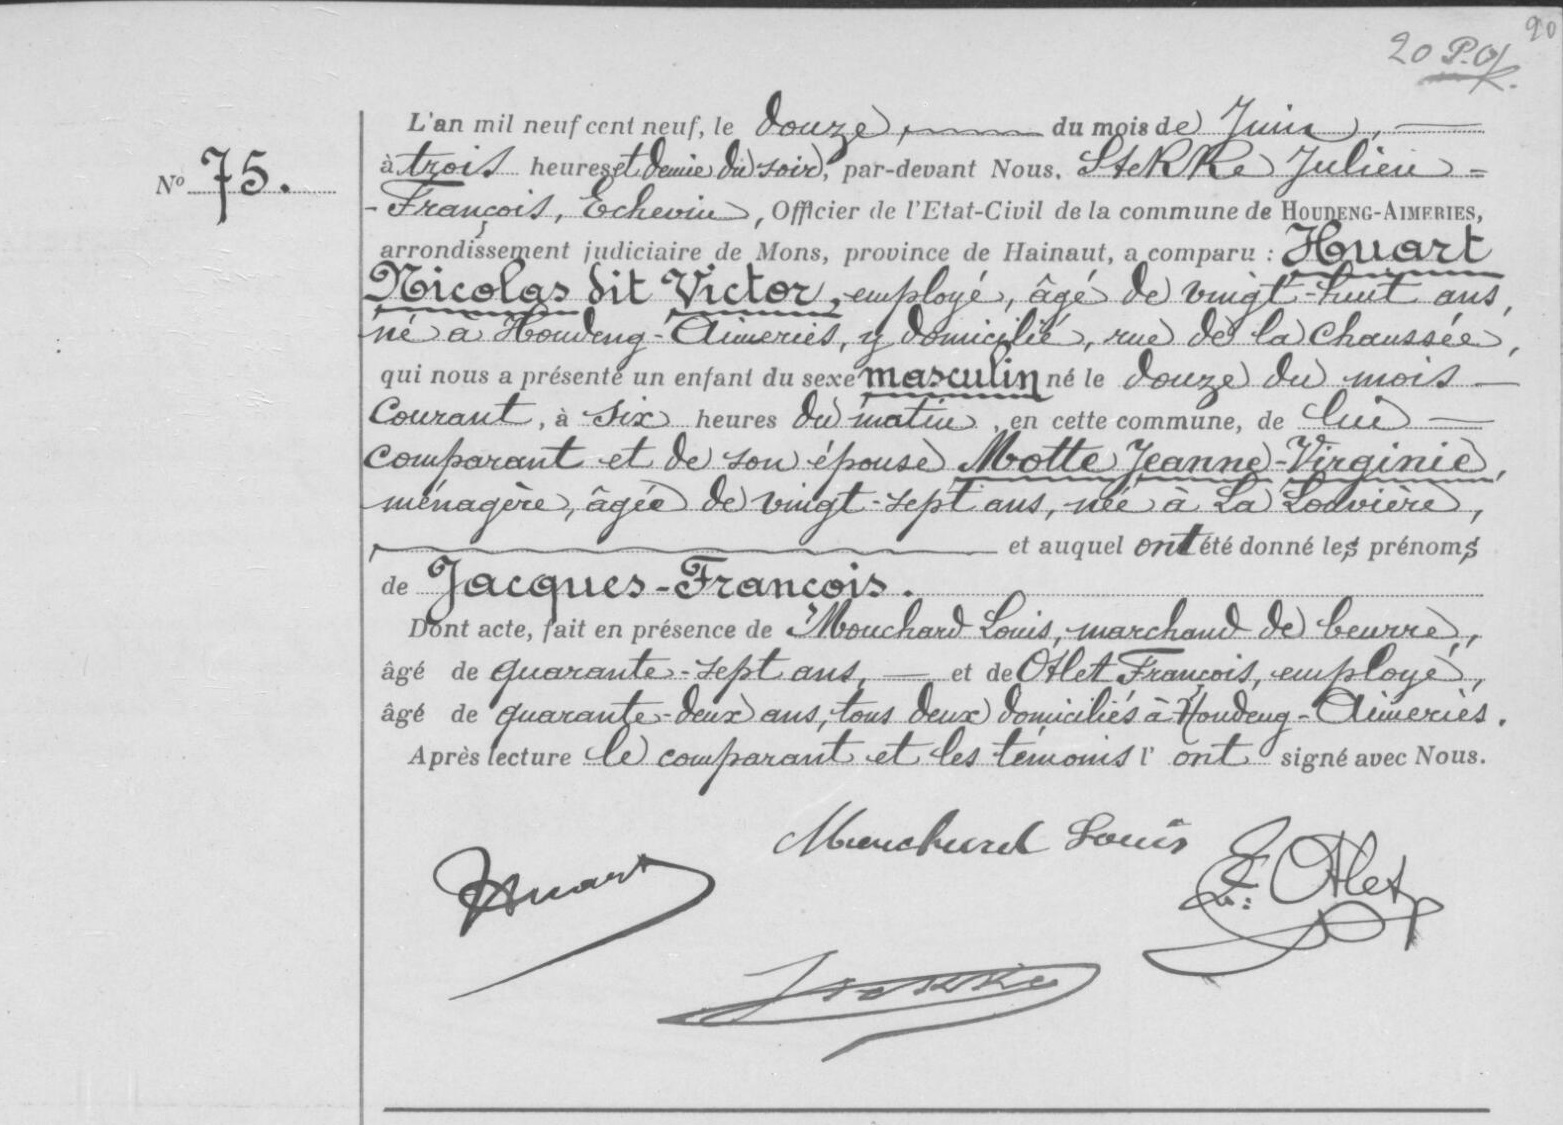 20
20 P.O/.
L'an mil neuf cent neuf, le douze, du mois de Juin,
Nº 75.
à trois heures et demie du soir, par-devant Nous, Stekke Julien =
- François, Echevin, Officier de l'Etat-Civil de la commune de HOUDENG-AIMERIES,
arrondissement judiciaire de Mons, province de Hainaut, a comparu : Huart
Nicolas dit Victor, employé, âgé de vingt-huit ans,
né à Houdeng-Aimeries, y domicilié, rue de la Chaussée,
qui nous a présenté un enfant du sexe masculin né le douze du mois —
courant, à six heures du matin, en cette commune, de lui —
comparant et de son épouse Motte Jeanne-Virginie,
ménagère, âgée de vingt-sept ans, née à La Louvière,
et auquel ont été donné les prénoms
de Jacques-François.
Dont acte, fait en présence de Mouchard Louis, marchand de beurre,
âgé de quarante-sept ans, — et de Otlet François, employé,
âgé de quarante-deux ans, tous deux domiciliés à Houdeng-Aimeries.
Après lecture le comparant et les témoins l'ont signé avec Nous.
Mouchard Louis
Huart
F. Otlet
Stekke